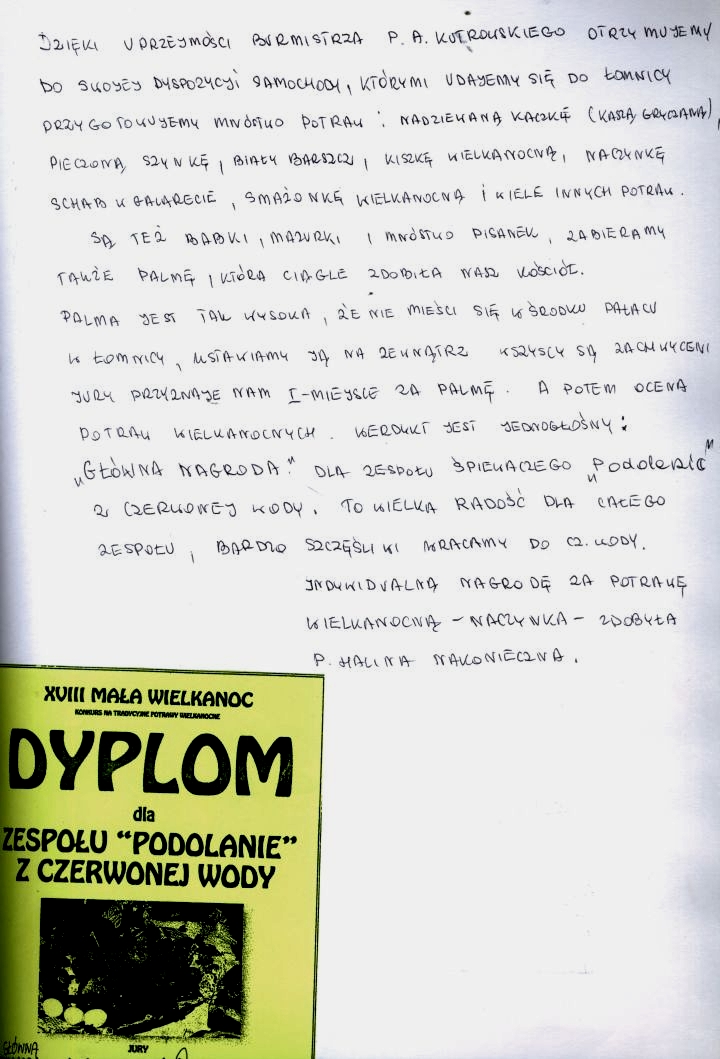 DZIĘKI UPRZEJMOŚCI BURMISTRZA P. A. KUTROWSKIEGO OTRZYMUJEMY
DO SWOJEJ DYSPOZYCJI SAMOCHODY, KTÓRYMI UDAJEMY SIĘ DO ŁOMNICY
PRZYGOTOWUJEMY MNÓSTWO POTRAW : NADZIEWANĄ KACZKĘ (KASZĄ GRYCZANĄ),
PIECZONĄ SZYNKĘ, BIAŁY BARSZCZ, KISZKĘ WIELKANOCNĄ, NACZYNKĘ
SCHAB W GALARECIE, SMAŻONKĘ WIELKANOCNĄ I WIELE INNYCH POTRAW.
SĄ TEŻ BABKI, MAZURKI I MNÓSTWO PISANEK, ZABIERAMY
TAKŻE PALMĘ, KTÓRA CIĄGLE ZDOBIŁA NASZ KOŚCIÓŁ.
PALMA JEST TAK WYSOKA, ŻE NIE MIEŚCI SIĘ W ŚRODKU PAŁACU
W ŁOMNICY, USTAWIAMY JĄ NA ZEWNĄTRZ WSZYSCY SĄ ZACHWYCENI
JURY PRZYZNAJE NAM I-MIEJSCE ZA PALMĘ. A POTEM OCENA
POTRAW WIELKANOCNYCH. WERDYKT JEST JEDNOGŁOŚNY:
„GŁÓWNA NAGRODA" DLA ZESPOŁU ŚPIEWACZEGO „Podolanie"
Z CZERWONEJ WODY. TO WIELKA RADOŚĆ DLA CAŁEGO
ZESPOŁU, BARDZO SZCZĘŚLIWI WRACAMY DO CZ. WODY.
INDYWIDUALNĄ NAGRODĘ ZA POTRAWĘ
WIELKANOCNĄ – NACZYNKA – ZDOBYŁA
P. HALINA NAKONIECZNA.
XVIII MAŁA WIELKANOC
KONKURS NA TRADYCYJNE POTRAWY WIELKANOCNE
DYPLOM
dla
ZESPOŁU "PODOLANIE"
Z CZERWONEJ WODY
GŁÓWNA
JURY